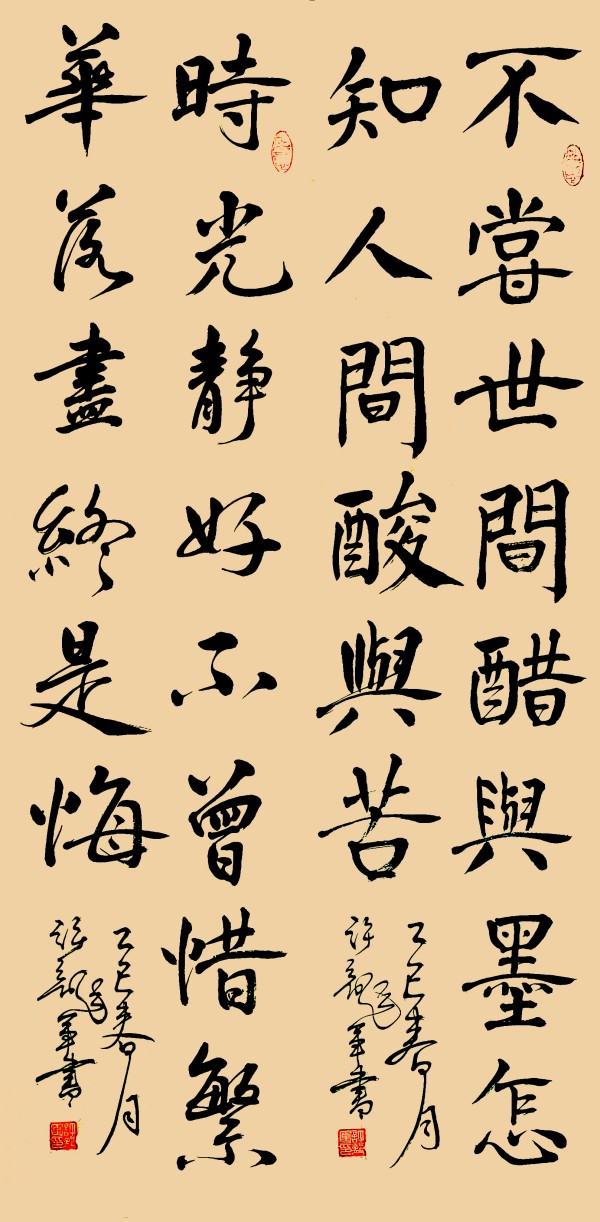 不嘗世間醋與墨怎
知人間酸與苦
乙巳春月
許龍軍書
時光靜好不曾惜繁
華落盡終是悔
乙巳春月
許龍軍書